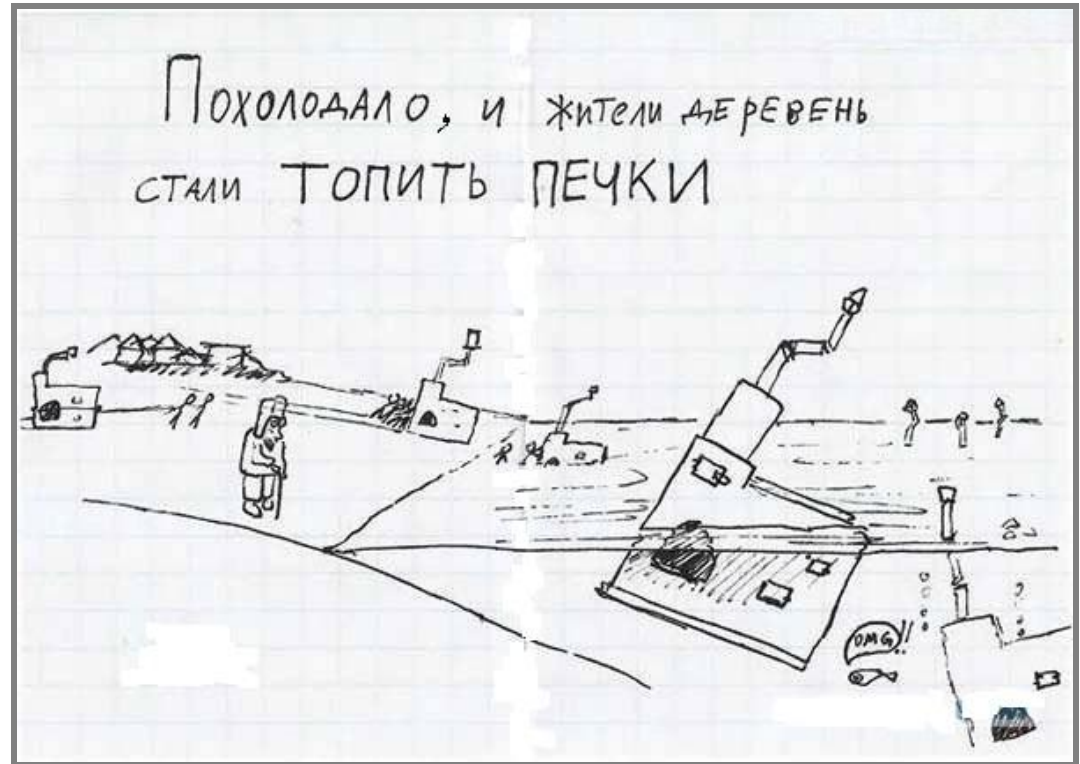 Похолодало, и жители деревень
стали топить печки
OMG!!